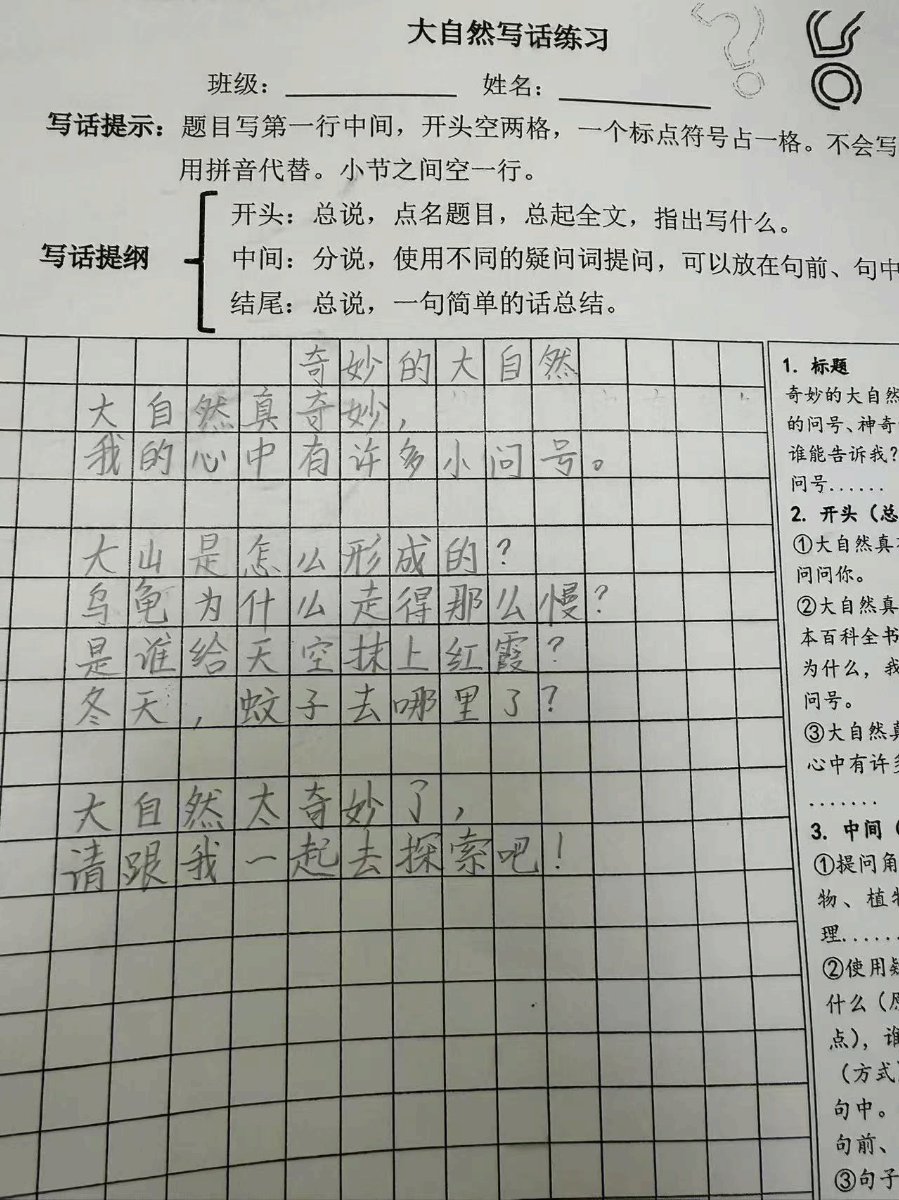 大自然写话练习
班级： 姓名：
写话提示：题目写第一行中间，开头空两格，一个标点符号占一格。不会写
用拼音代替。小节之间空一行。
写话提纲
开头：总说，点名题目，总起全文，指出写什么。
中间：分说，使用不同的疑问词提问，可以放在句前、句中
结尾：总说，一句简单的话总结。
奇妙的大自然
大自然真奇妙，
我的心中有许多小问号。
大山是怎么形成的？
乌龟为什么走得那么慢？
是谁给天空抹上红霞？
冬天，蚊子去哪里了？
大自然太奇妙了，
请跟我一起去探索吧！
1. 标题
奇妙的大自然
的问号、神奇
谁能告诉我？
问号......
2. 开头（总
①大自然真
问问你。
②大自然真
本百科全书
为什么，我
问号。
③大自然真
心中有许多
.......
3. 中间（
①提问角
物、植物
理......
②使用疑
什么（原
点），谁
（方式）
句中。
句前、
③句子